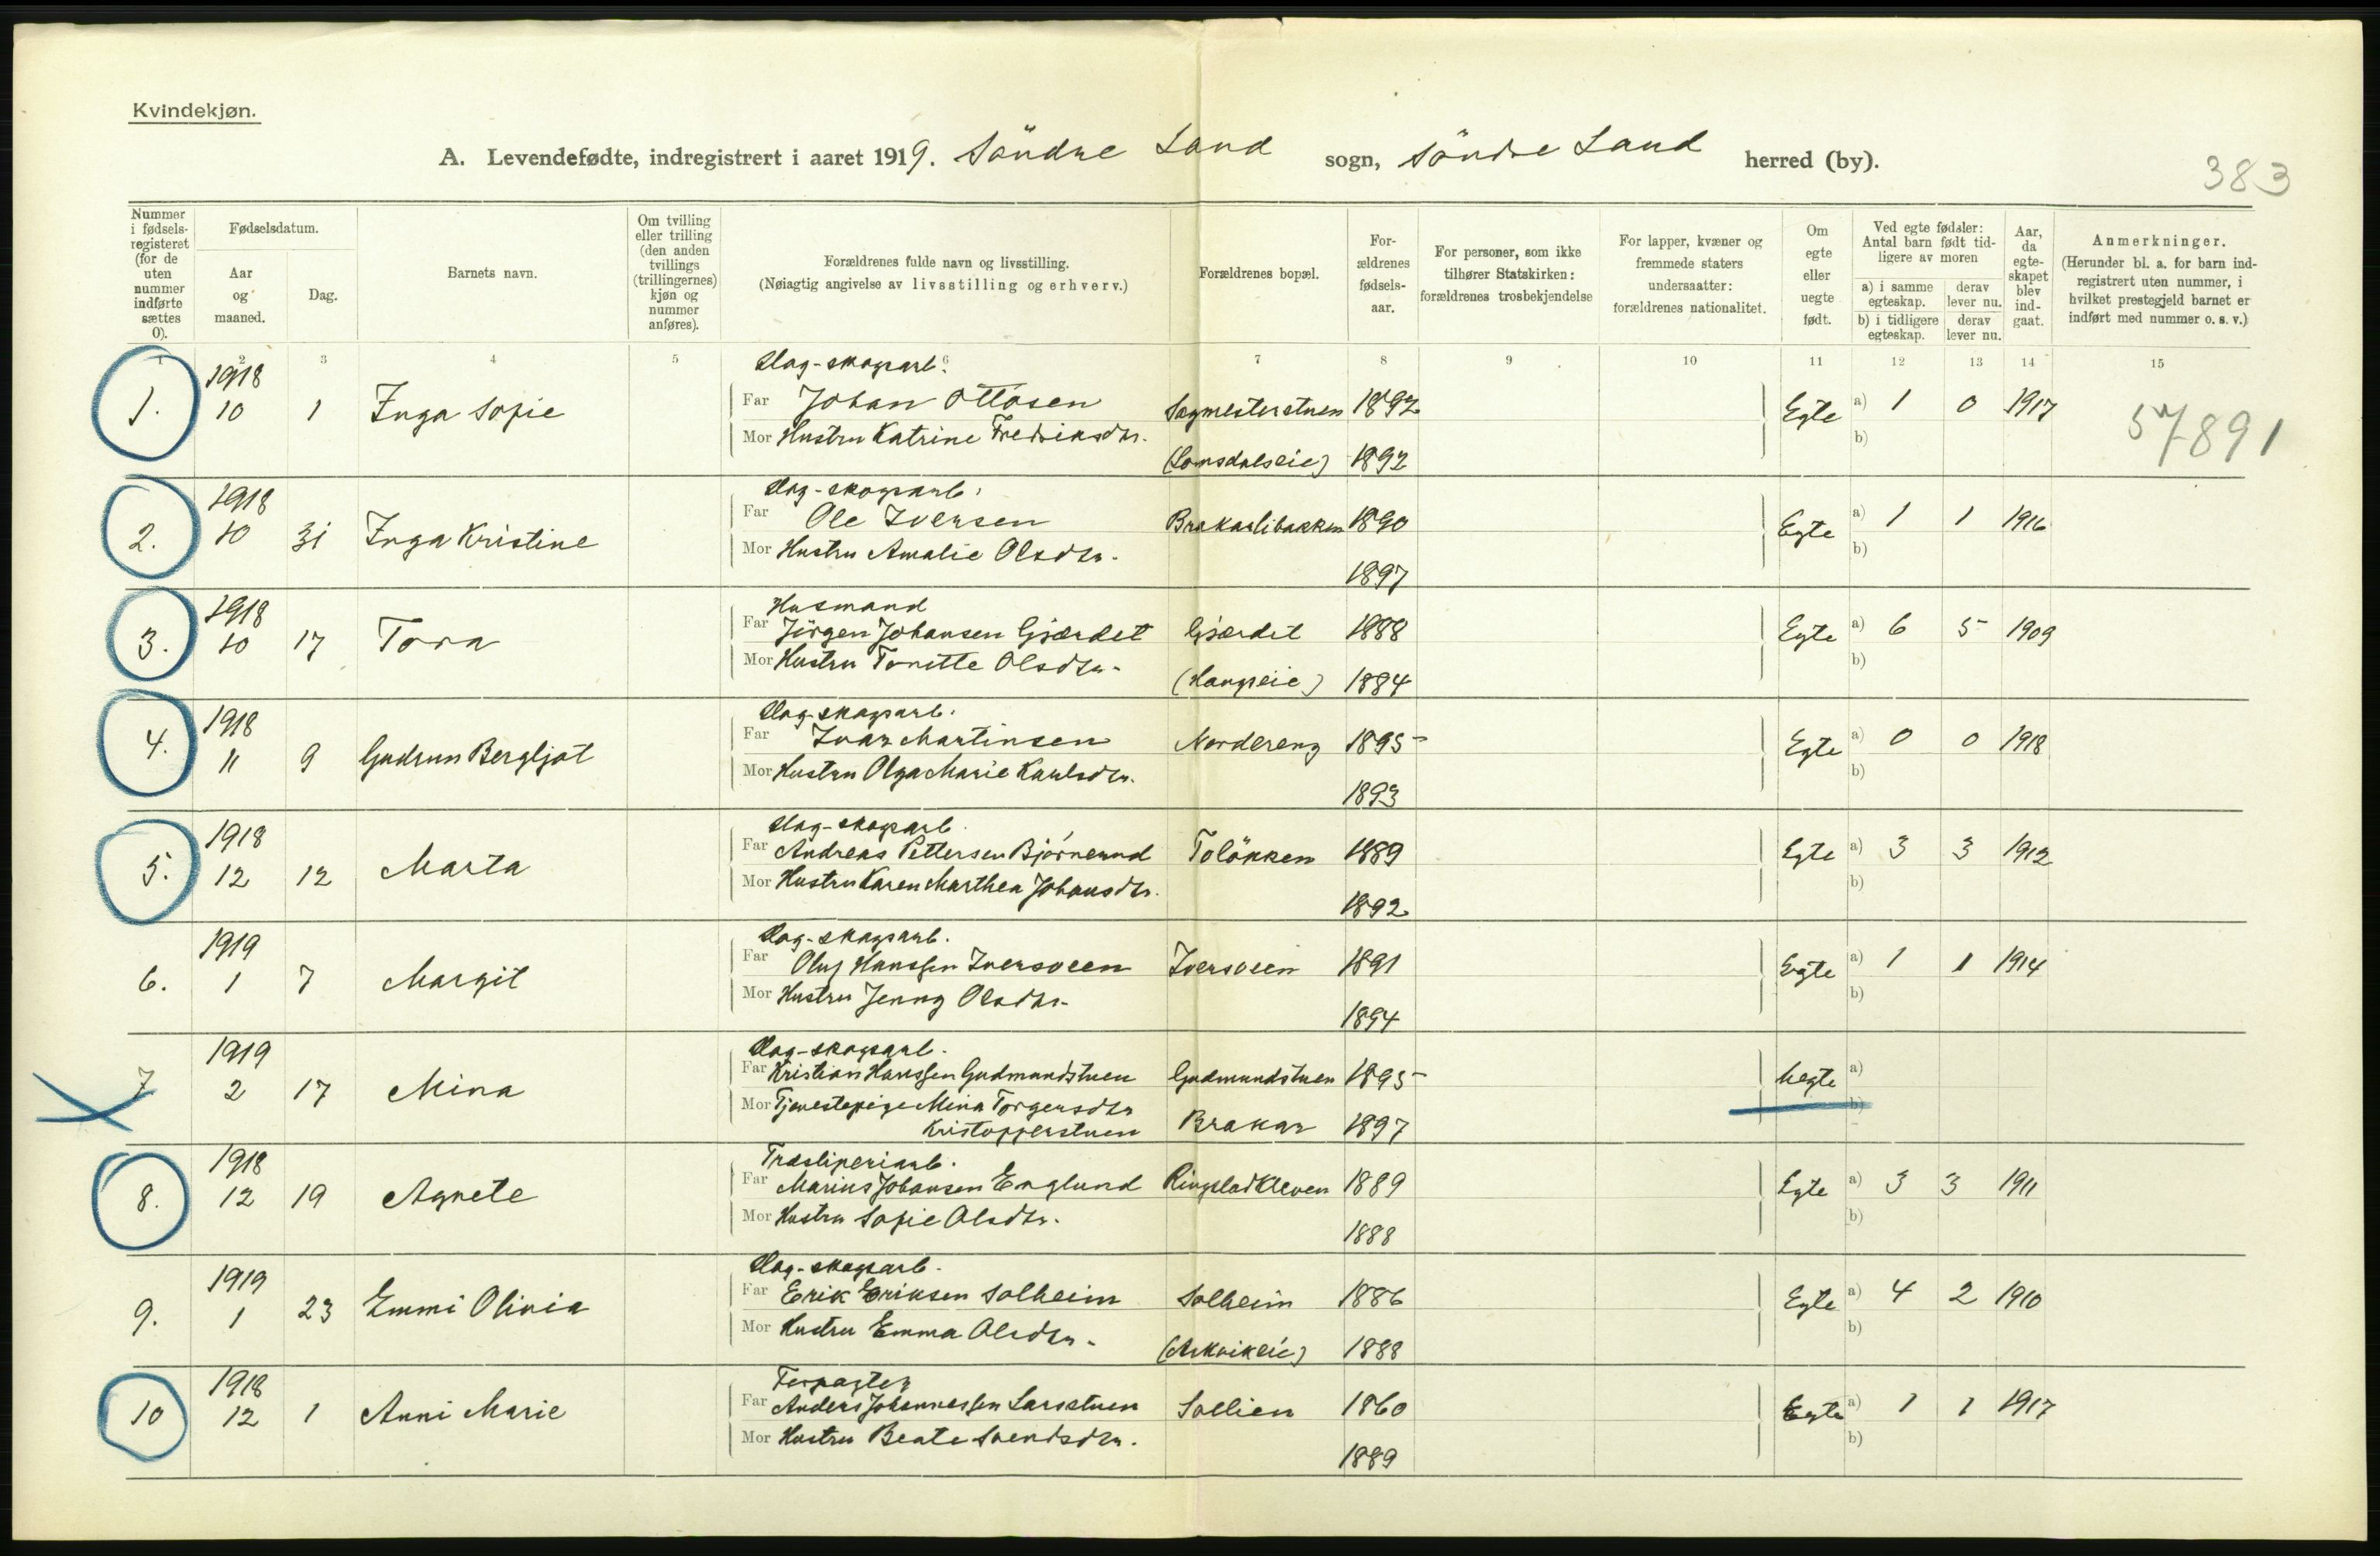 Kvindekjøn.
A. Levendefødte, indregistrert i aaret 1919. Söndre Land sogn, Söndre Land herred (by).
383
Nummer i fødsels-registeret (for de uten nummer indførte sættes 0).
Fødselsdatum.
Aar og maaned.
Dag.
Barnets navn.
Om tvilling eller trilling (den anden tvillings (trillingernes) kjøn og nummer anføres).
Forældrenes fulde navn og livsstilling.
(Nøiagtig angivelse av livsstilling og erhverv.)
Forældrenes bopæl.
For-ældrenes fødsels-aar.
For personer, som ikke tilhører Statskirken: forældrenes trosbekjendelse
For lapper, kvæner og fremmede staters undersaatter: forældrenes nationalitet.
Om egte eller uegte født.
Ved egte fødsler: Antal barn født tid-ligere av moren
a) i samme egteskap.
derav lever nu.
b) i tidligere egteskap.
derav lever nu.
Aar, da egte-skapet blev ind-gaat.
Anmerkninger.
(Herunder bl. a. for barn ind-registrert uten nummer, i hvilket prestegjeld barnet er indført med nummer o. s. v.)
1 2 3 4 5 6 7 8 9 10 11 12 13 14 15
1918 Dag-skogsarb.
1. 10 1 Inga Sofie Far Johan Ottosen Sagmesterstuen 1892 Egte a) 1 0 1917
Mor Hustru Katrine Fredriksdtr. b)
(Lomsdalseie) 1892
57891
1918 Dag-skogsarb.
2. 10 31 Inga Kristine Far Ole Iversen Brakarlibakken 1890 Egte a) 1 1 1916
Mor Hustru Amalie Olsdtr. b)
1897
1918 Husmand
3. 10 17 Tora Far Jörgen Johansen Gjærdet Gjærdet 1888 Egte a) 6 5 1909
Mor Hustru Tonette Olsdtr. b)
(Haugseie) 1884
1918 Dag-skogsarb.
4. 11 9 Gudrun Bergljot Far Ivar Martinsen Nordereng 1895 Egte a) 0 0 1918
Mor Hustru Olga Marie Karlsdtr. b)
1893
1918 Dag-skogsarb.
5. 12 12 Marta Far Andreas Pettersen Björnerud Tolökken 1889 Egte a) 3 3 1912
Mor Hustru Karen Marthea Johansdtr. b)
1892
1919 Dag-skogsarb.
6. 1 7 Margit Far Oluf Hanssen Iversveen Iversveen 1891 Egte a) 1 1 1914
Mor Hustru Jenny Olsdtr. b)
1894
1919 Dag-skogsarb.
7 2 17 Mina Far Kristian Hanssen Gudmundstuen Gudmundstuen 1895 Uegte a)
Mor Tjenestepige Mina Torgersdtr b)
Kristofferstuen Brakar 1897
1918 Træsliperiarb.
8. 12 19 Agnete Far Marius Johansen Englund Ringeladkleven 1889 Egte a) 3 3 1911
Mor Hustru Sofie Olsdtr. b)
1888
1919 Dag-skogsarb.
9. 1 23 Emmi Olivia Far Erik Eriksen Solheim Solheim 1886 Egte a) 4 2 1910
Mor Hustru Emma Olsdtr. b)
(Askvikeie) 1888
1918 Forpagter
10 12 1 Anni Marie Far Anders Johannessen Larsstuen Sollien 1860 Egte a) 1 1 1917
Mor Hustru Beate Svendsdtr. b)
1889